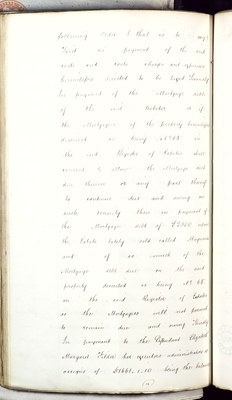 following Order (that is to say)
fixed in payment of the said
costs and costs charges and expenses
hereinbefore directed to be taxed Secondly
in payment of the Mortgage debts
of the said testator as if
the Mortgagees of the property hereinafter
described as being No 48 in
the said Register of Estates shall
consent to allow the Mortgage debt
due thereon or any part thereof
to continue due and owing on
such security then in payment of
the Mortgage debt of £2500 upon
the Estate lately sold called
and of so much of the
Mortgage debt due on the said
property described as being No 48
in the said Register of Estates
as the Mortgagees will not permit
to remain due and owing Thirdly
In payment to the Defendant Elizabeth
Margaret her executors administrators or
assigns of £1661,1,10 being the balance